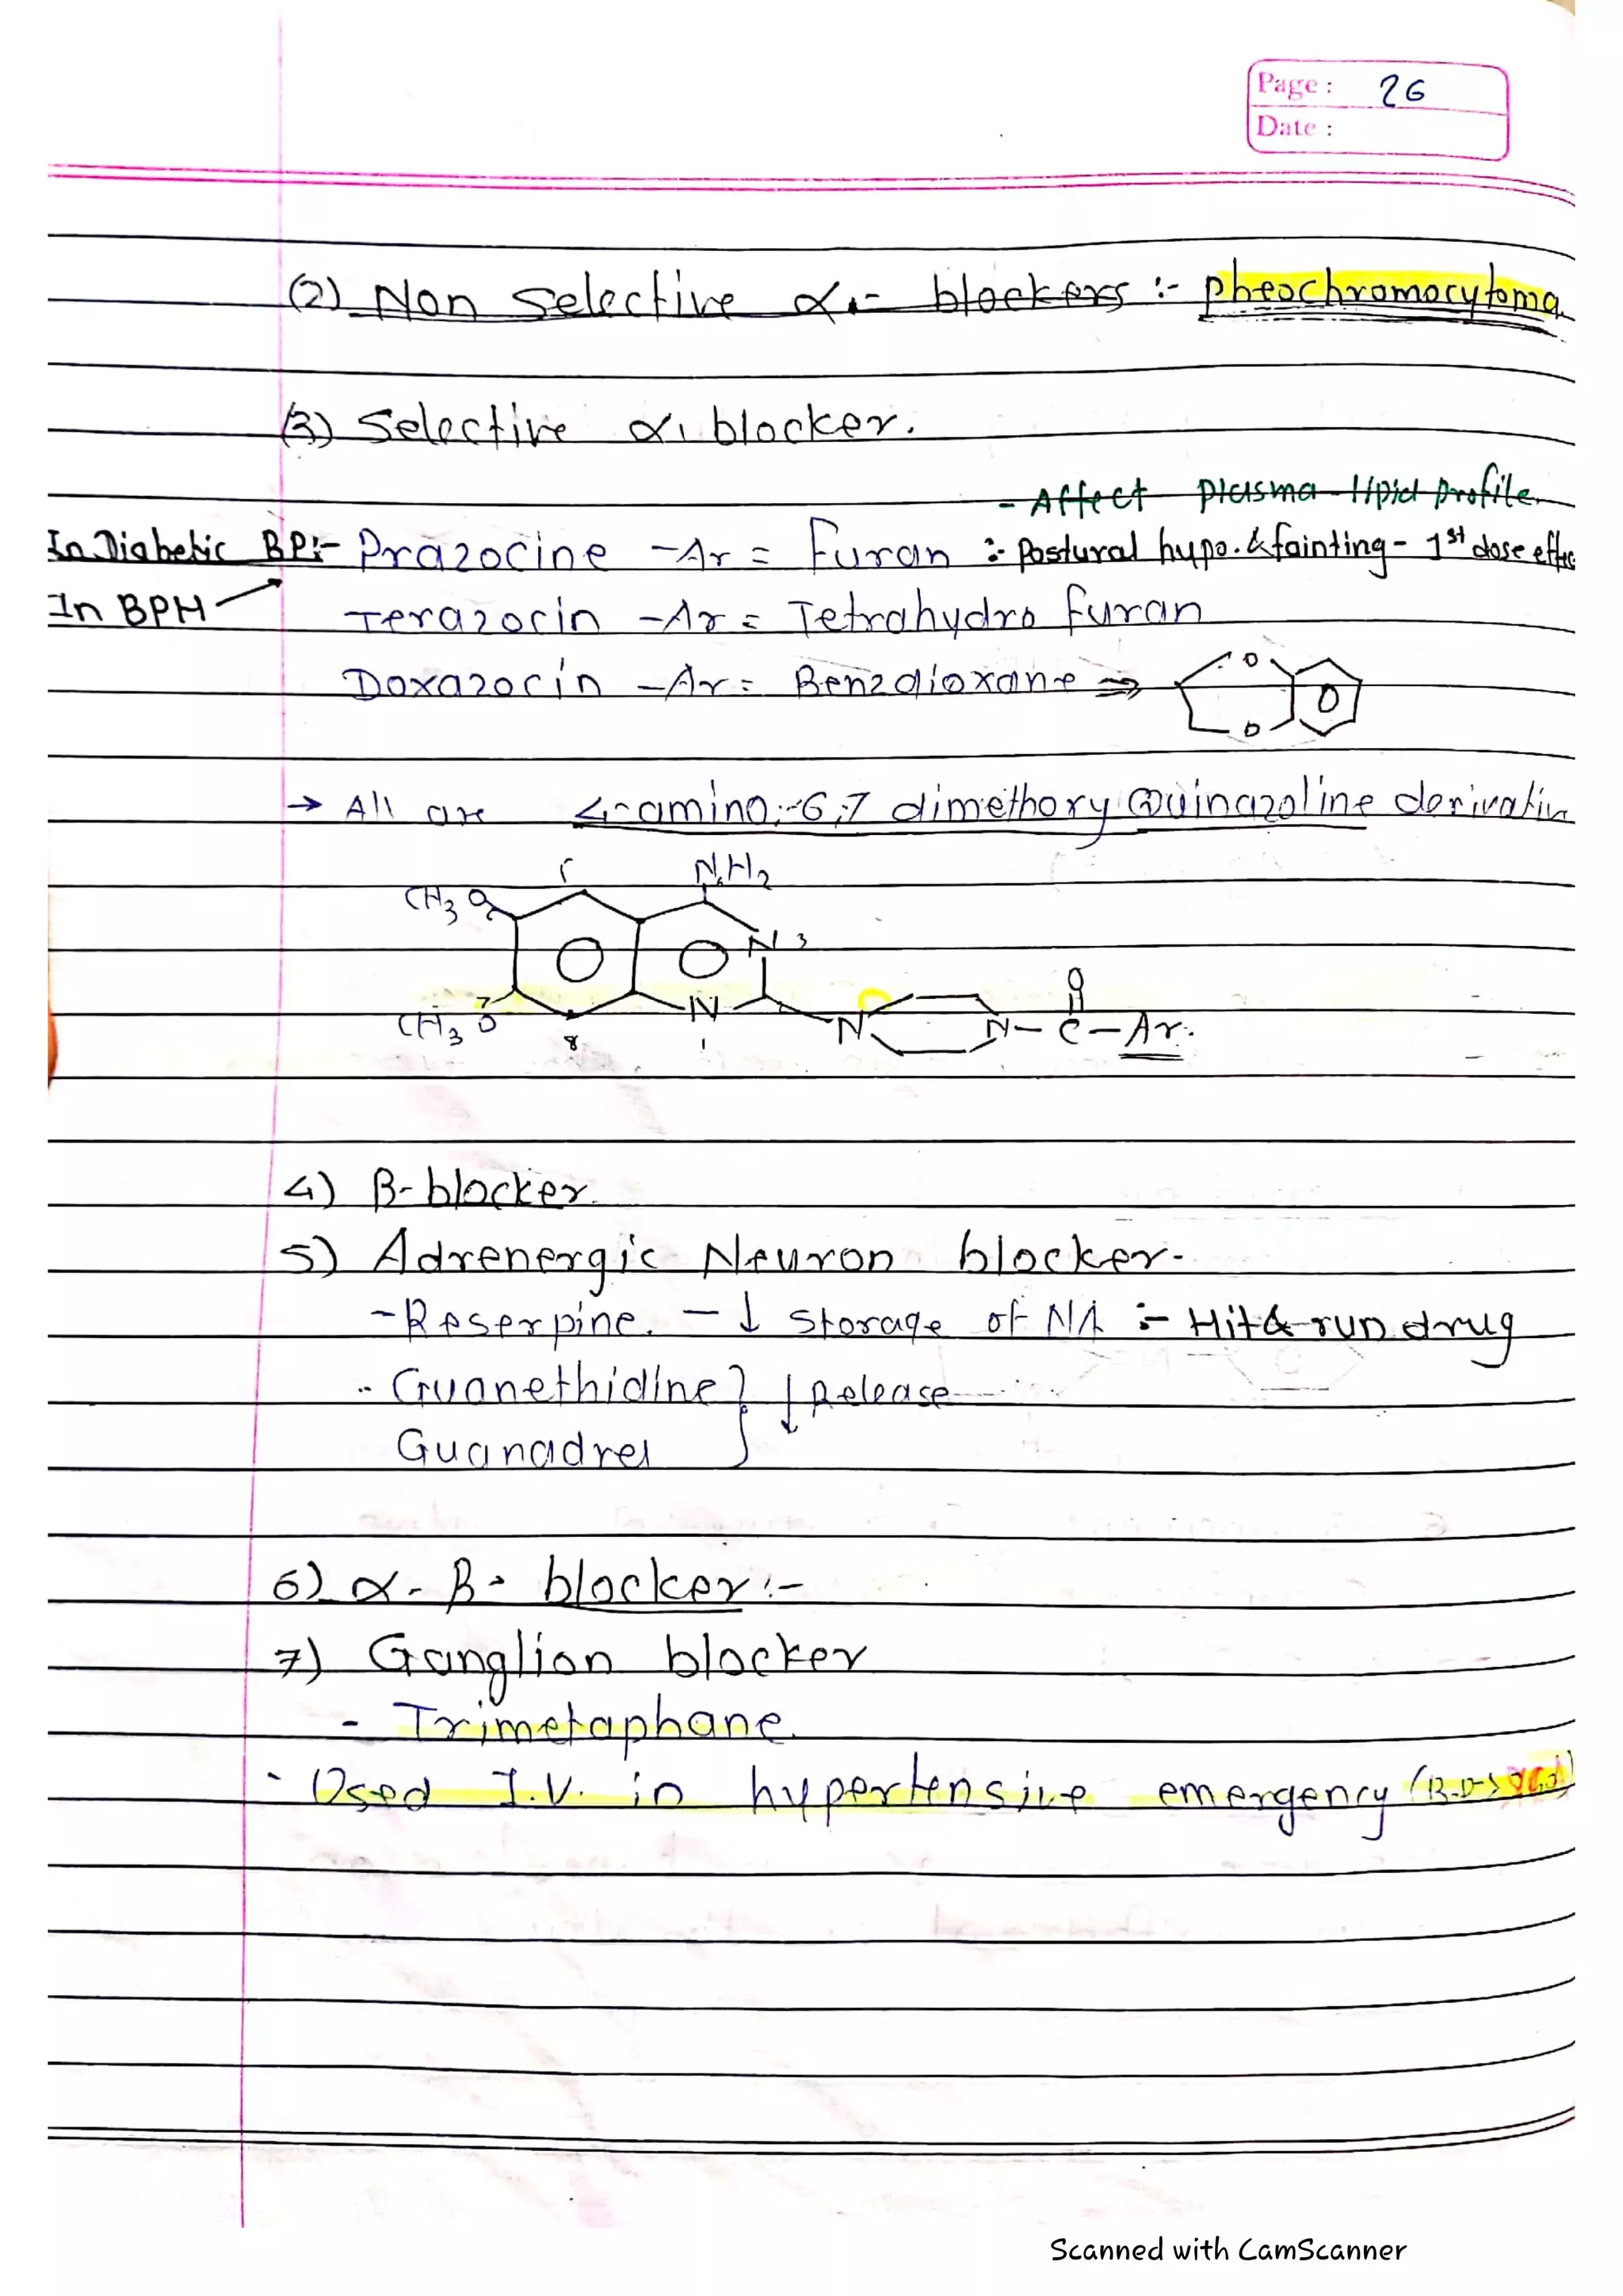 Page : 26
Date :
(2) Non Selective α - blockers :- pheochromocytoma
(3) Selective α1 blocker.
- Affect plasma lipid profile
In Diabetic BP:- Prazocine - Ar = Furan :- Postural hypo. & fainting - 1st dose effec
In BPH Terazocin - Ar = Tetrahydro furan
Doxazocin - Ar = Benzdioxane ⇒
O
O
→ All are 4-amino-6,7 dimethoxy Quinazoline derivativ
NH2
CH3 O
N 3
O
7
CH3 O
N
N
N - C - Ar.
8
1
4) β-blocker
5) Adrenergic Neuron blocker-
- Reserpine. - ↓ storage of NA :- Hit & run drug
- Guanethidine } ↓ Release
Guanadrel
6) α-β- blocker :-
7) Ganglion blocker
- Trimetaphane
- Used I.V. in hypertensive emergency
Scanned with CamScanner